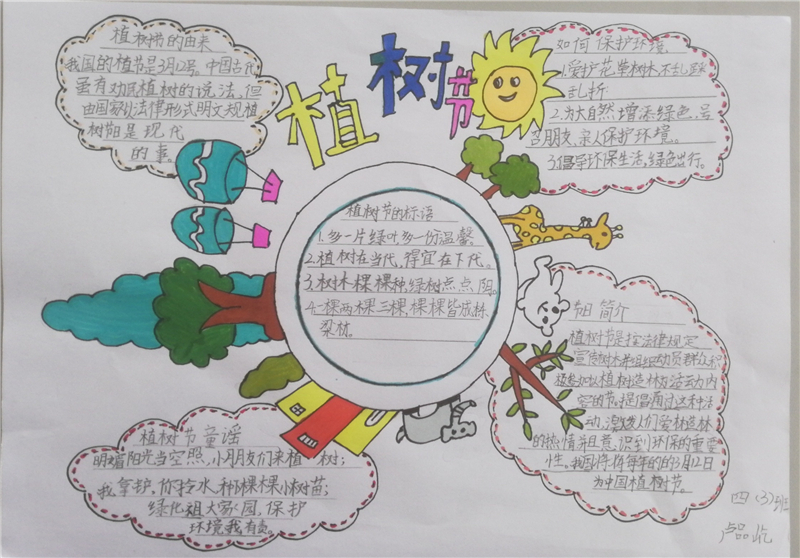 植树节
植树节的由来
我国的植节是3月12号。中国古代
虽有劝民植树的说法，但
由国家以法律形式明文规植
树节日是现代
的事。
如何保护环境
1.爱护花草树木不乱踩
乱折
2.为大自然增添绿色，号
召朋友，亲人保护环境。
3.倡导环保生活，绿色出行。
植树节的标语
1.多一片绿叶，多一份温馨
2.植树在当代，得宜在下代。
3.树木棵棵种，绿树点点阴。
4.一棵两棵三棵，棵棵皆成林
梁材。
节日简介
植树节是按法律规定
宣传树木并组织动员群众积
极参加以植树造林为活动内
容的节，提倡通过这种活
动，激发人们爱林造林
的热情并且意识到环保的重要
性。我国将每年的3月12日
为中国植树节。
植树节童谣
阳光当空照，小朋友们来植树；
我拿铲，你拎水，种棵棵小树苗；
绿化祖大家园，保护
环境我有责。
四（3）班
卢品